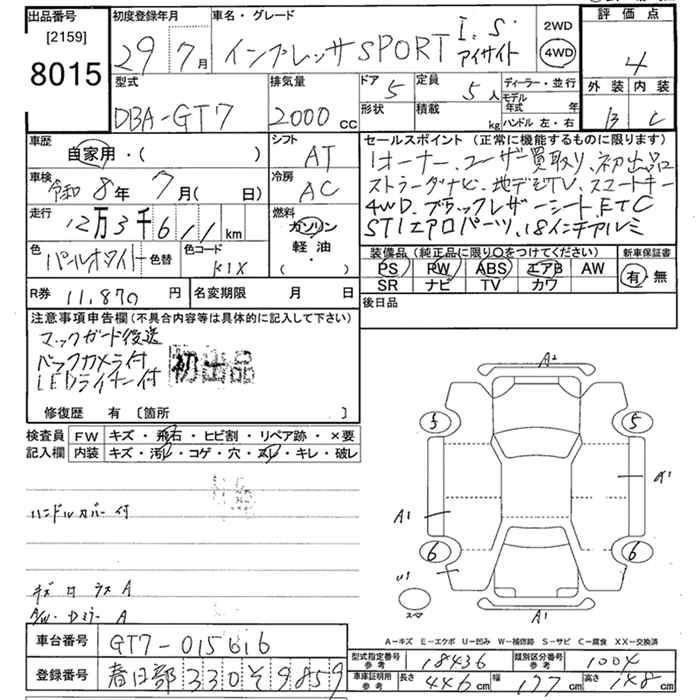 出品番号 [2159] 8015
初度登録年月 29年7月
車名・グレード インプレッサSPORT I.S アイサイト
2WD 4WD
評価点 4
外装 B 内装 C
型式 DBA-GT7
排気量 2000 CC
ドア 5 形状
定員 5人 積載 kg
ディーラー・並行
モデル年式 年
ハンドル 左・右
車歴 自家用・( )
シフト AT
車検 令和8年7月( 日)
冷房 AC
走行 12万3千611km
燃料 ガソリン 軽油 ( ・ )
色 パールホワイト 色替
色コード K1X
R券 11,870円
名変期限 月 日
セールスポイント (正常に機能するものに限ります)
1オーナー、ユーザー買取り、初出品
ストラーダナビ、地デジTV、スマートキー
4WD、ブラックレザーシート、ETC
STIエアロパーツ、18インチアルミ
装備品 (純正品に限り○をつけてください)
新車保証書 有・無
PS PW ABS エアB AW
SR ナビ TV カワ
後日品
注意事項申告欄(不具合内容等は具体的に記入して下さい)
マックガード後送
バックカメラ付
LEDライナー付
初出品
修復歴 有 [箇所 ]
検査員記入欄
FW キズ・飛石・ヒビ割・リペア跡・×要
内装 キズ・汚レ・コゲ・穴・スレ・キレ・破レ
ハンドルカバー付
キズ ロ ラス A
A/W・Dミラー A
A2
3 5
A1
6 6
U1
スマ
A1
A-キズ E-エクボ U-凹み W-補修跡 S-サビ C-腐食 XX-交換済
車台番号 GT7-015616
登録番号 春日部 330 そ 9859
型式指定番号 参考 18436
類別区分番号 参考 1004
車庫証明用 参考 長さ 446cm 幅 177cm 高さ 148cm